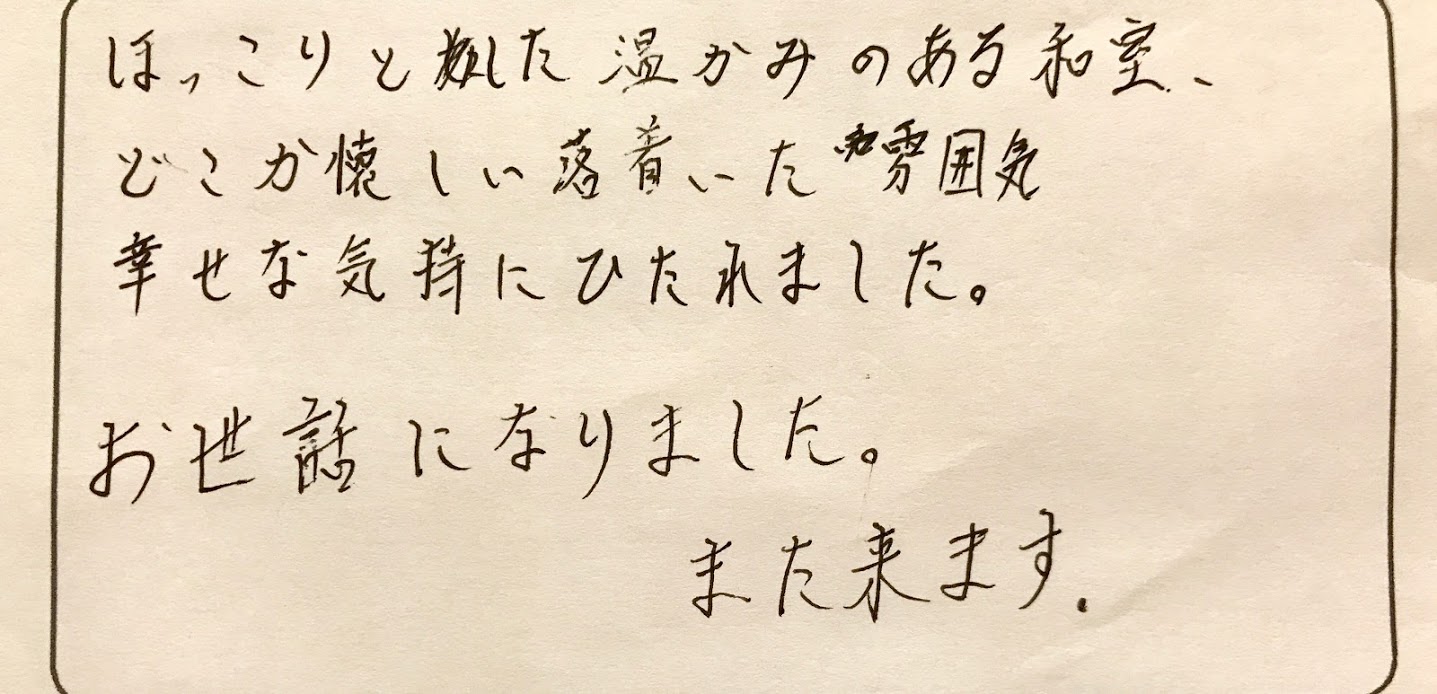 ほっこりと した 温かみのある和室、
どこか懐しい落着いた 雰囲気
幸せな気持にひたれました。
お世話になりました。
また来ます.